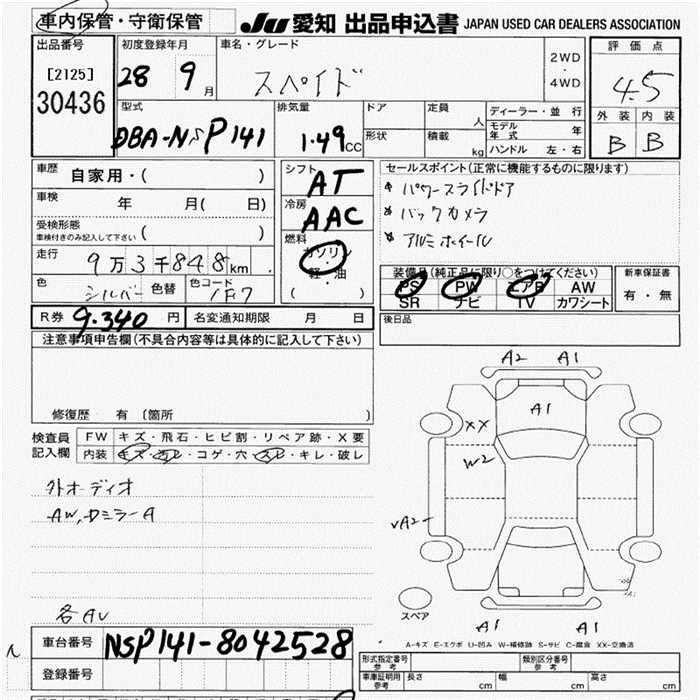 車内保管・守衛保管
JU 愛知 出品申込書 JAPAN USED CAR DEALERS ASSOCIATION
出品番号
[2125]
30436
初度登録年月
28 9 月
車名・グレード
スペイド
2WD
・
4WD
評価点
4.5
外装 内装
B B
型式
DBA-NSP141
排気量
1.49 CC
ドア
形状
定員 人
積載 kg
ディーラー・並行
モデル年式 年
ハンドル 左・右
車歴 自家用・( )
車検 年 月( 日)
受検形態
車検付きのみ記入して下さい ( )
走行 9万3千848km
色 シルバー 色替 色コード 1F7
シフト
AT
冷房
AAC
燃料
ガソリン
・
軽・油
( )
セールスポイント(正常に機能するものに限ります)
パワースライドドア
バックカメラ
アルミホイール
装備品(純正品に限り○をつけてください)
PS PW エアB AW
SR ナビ TV カワシート
新車保証書
有・無
R券 9.340 円
名変通知期限 月 日
後日品
注意事項申告欄(不具合内容等は具体的に記入して下さい)
修復歴 有 〔箇所 〕
検査員記入欄
FW キズ・飛石・ヒビ割・リペア跡・X要
内装 キズ・汚レ・コゲ・穴・スレ・キレ・破レ
外オーディオ
AW,Dミラー A
各AU
A2 A1
A1
XX
W2
A2
スペア
A1 A1
A-キズ E-エクボ U-凹み W-補修跡 S-サビ C-腐食 XX-交換済
車台番号 NSP141-8042528
登録番号
形式指定番号 参考
類別区分番号 参考
車庫証明用 参考 長さ cm 幅 cm 高さ cm